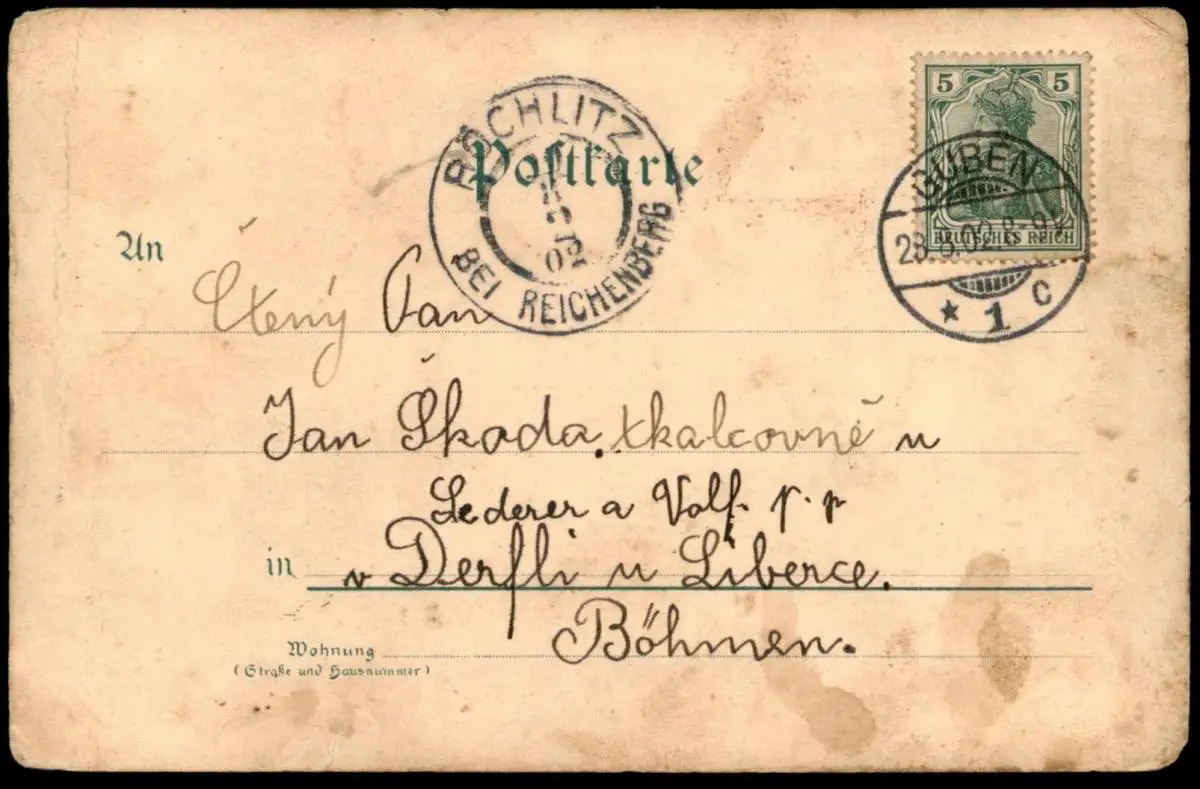 5 5
DEUTSCHES REICH
GUBEN
02.
* 1 c
RÖCHLITZ
02
BEI REICHENBERG
Postkarte
An
Ctěný Pan
Jan Škoda, tkalcovně u
Lederer a Volf. p. p
in v Derfli u Liberce.
Böhmen.
Wohnung
(Straße und Hausnummer)